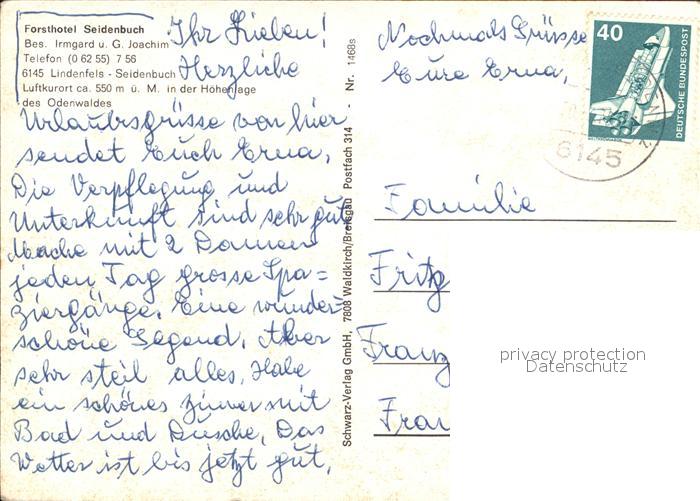 Forsthotel Seidenbuch
Bes. Irmgard u. G. Joachim
Telefon (0 62 55) 7 56
6145 Lindenfels - Seidenbuch
Luftkurort ca. 550 m ü. M. in der Höhenlage
des Odenwaldes
Ihr Lieben!
Herzliche
Urlaubsgrüsse von hier
sendet Euch Erna,
Die Verpflegung und
Unterkunft sind sehr gut
Mache mit 2 Damen
jeden Tag grosse Spa=
ziergänge. Eine wunder
schöne Gegend. Aber
sehr steil alles. Habe
ein schönes Zimmer mit
Bad und Dusche. Das
Wetter ist bis jetzt gut.
Schwarz-Verlag GmbH, 7808 Waldkirch/Breisgau Postfach 314 - Nr. 1468s
Nochmals Grüsse
Eure Erna,
40
DEUTSCHE BUNDESPOST
6145
Familie
Fritz
Franz
Frau
privacy protection
Datenschutz